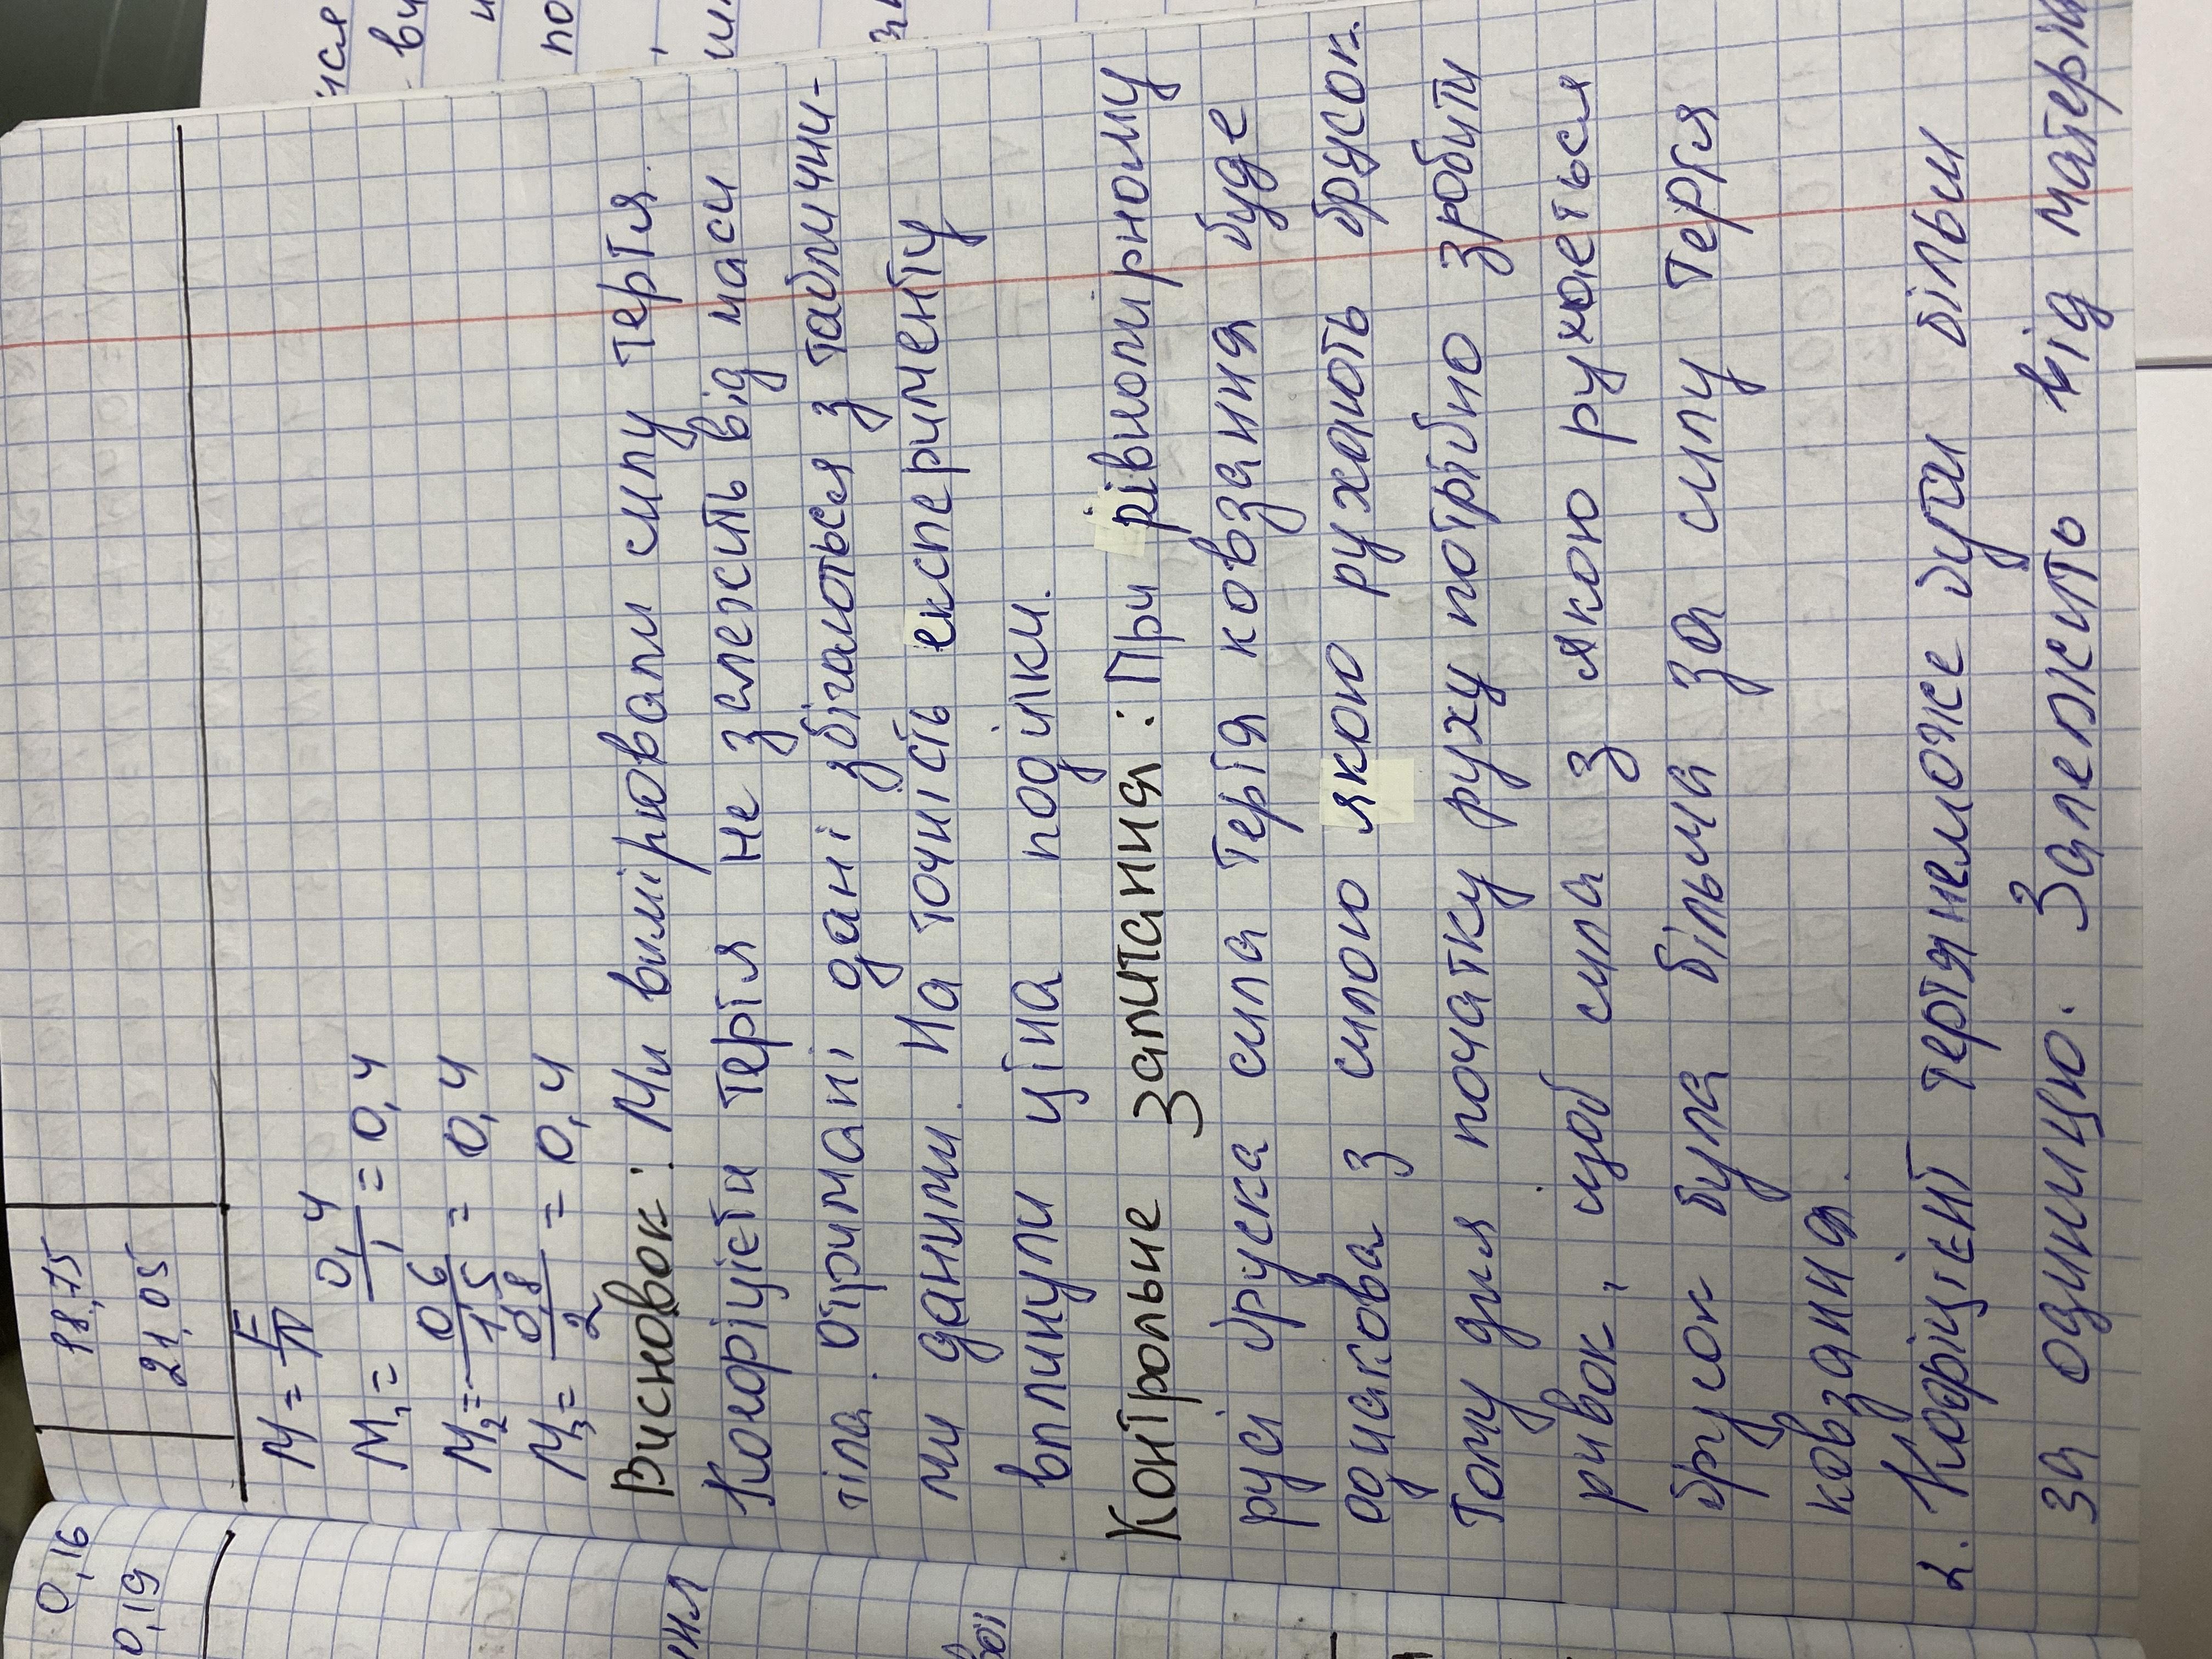 0,16 18,75
0,19 21,05
M = F/N
M₁ = 0,4/1 = 0,4
M₂ = 0,6/1,5 = 0,4
M₃ = 0,8/2 = 0,4
Висновок: Ми вимірювали силу тертя.
Коифіцієти тертя не залежить від маси
тіла. Отримані дані збігаються з табличи-
ми даними. На точність експерименту
вплинули ціна поділки.
Контрольне Запитання: При рівномірному
русі бруска сила тертя ковзання буде
однакова з силою якою рухають брусок.
Тому для початку руху потрібно зробити
ривок, щоб сила з якою рухається
брусок була більша за силу тертя
ковзання.
2. Коофіцієнт тертя неможе бути більш
за одиницю. Залежить від матеріа